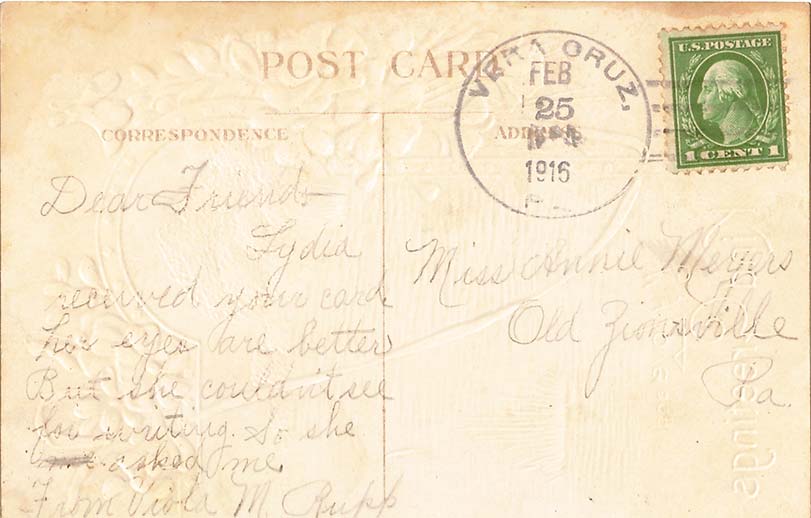 POST CARD
CORRESPONDENCE
ADDRESS
VERA CRUZ,
FEB
25
1916
U.S. POSTAGE
1 CENT 1
Dear Friend
Lydia
received your card
her eyes are better
But she couldn't see
for writing. So she
asked me
From Viola M. Rupp
Miss Annie Meyers
Old Zionsville
Pa.